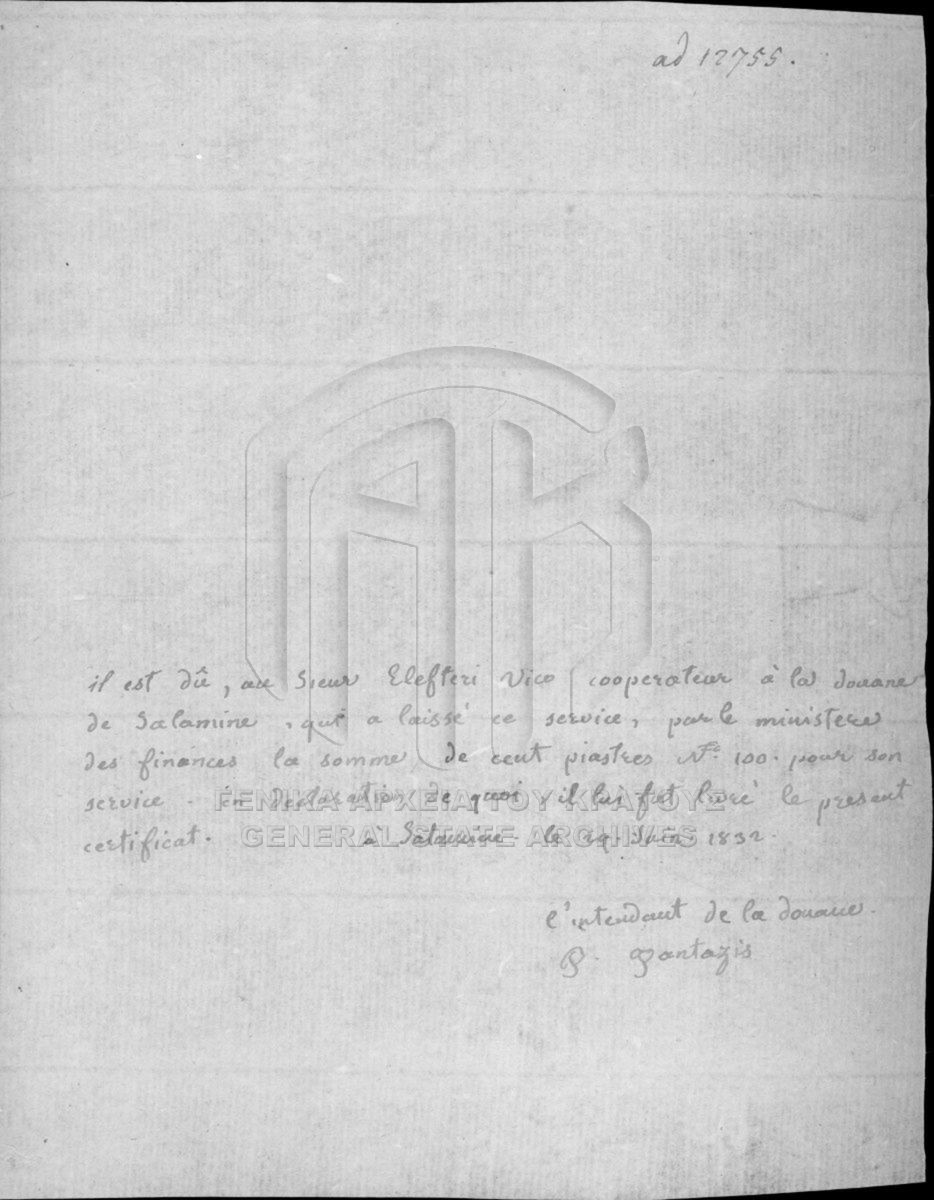 ad 12755.
il est dû, au Sieur Elefteri Vico cooperateur à la douane
de Salamine, qui a laissé ce service, par le ministere
des finances la somme de cent piastres N.º 100. pour son
service. en declaration de quoi il lui fut livré le present
ΓΕΝΙΚΑ ΑΡΧΕΙΑ ΤΟΥ ΚΡΑΤΟΥΣ
certificat. à Salamine le 29 Juin 1832.
GENERAL STATE ARCHIVES
l'intendant de la douane.
P. Pantazis